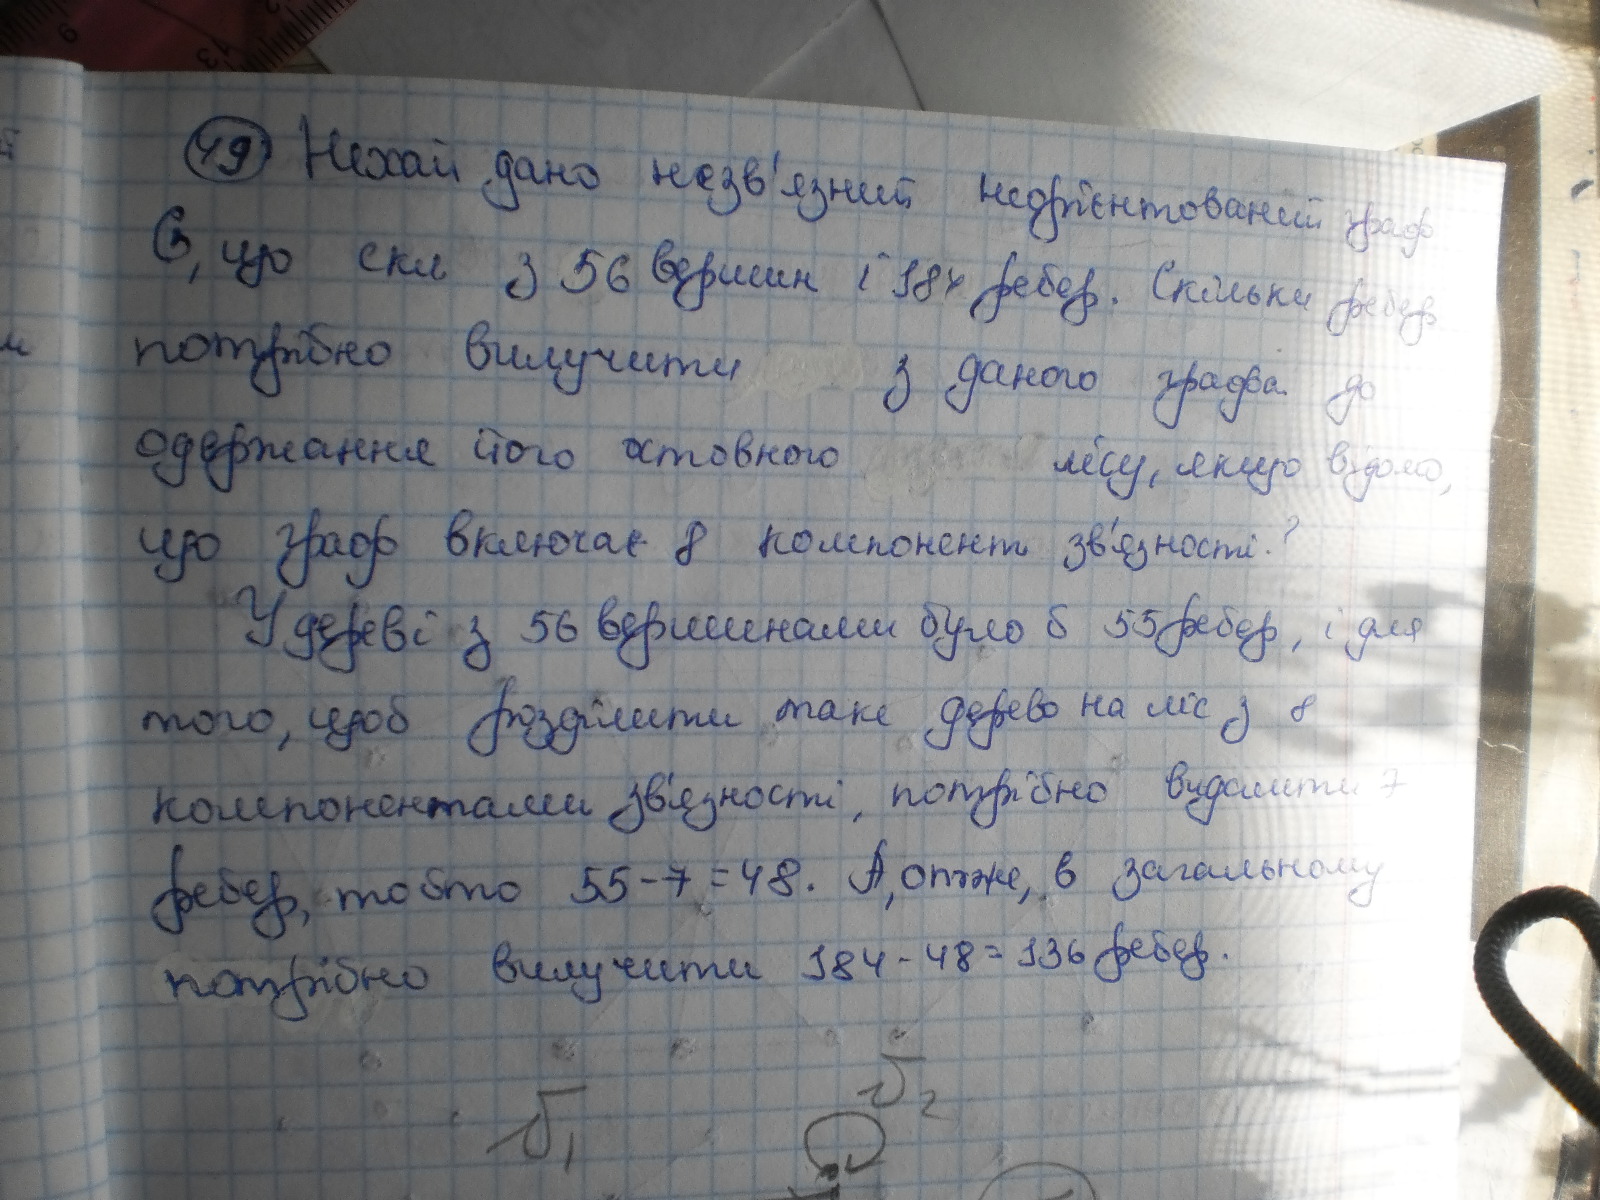 49 Нехай дано незв'язний неорієнтований граф
G, що скл з 56 вершин і 184 ребер. Скільки ребер
потрібно вилучити з даного графа до
одержання його остовного лісу, якщо відомо,
що граф включає 8 компонент зв'язності?
У дереві з 56 вершинами було б 55 ребер, і для
того, щоб розділити таке дерево на ліс з 8
компонентами зв'язності, потрібно видалити 7
ребер, тобто 55-7=48. А, отже, в загальному
потрібно вилучити 184-48=136 ребер.